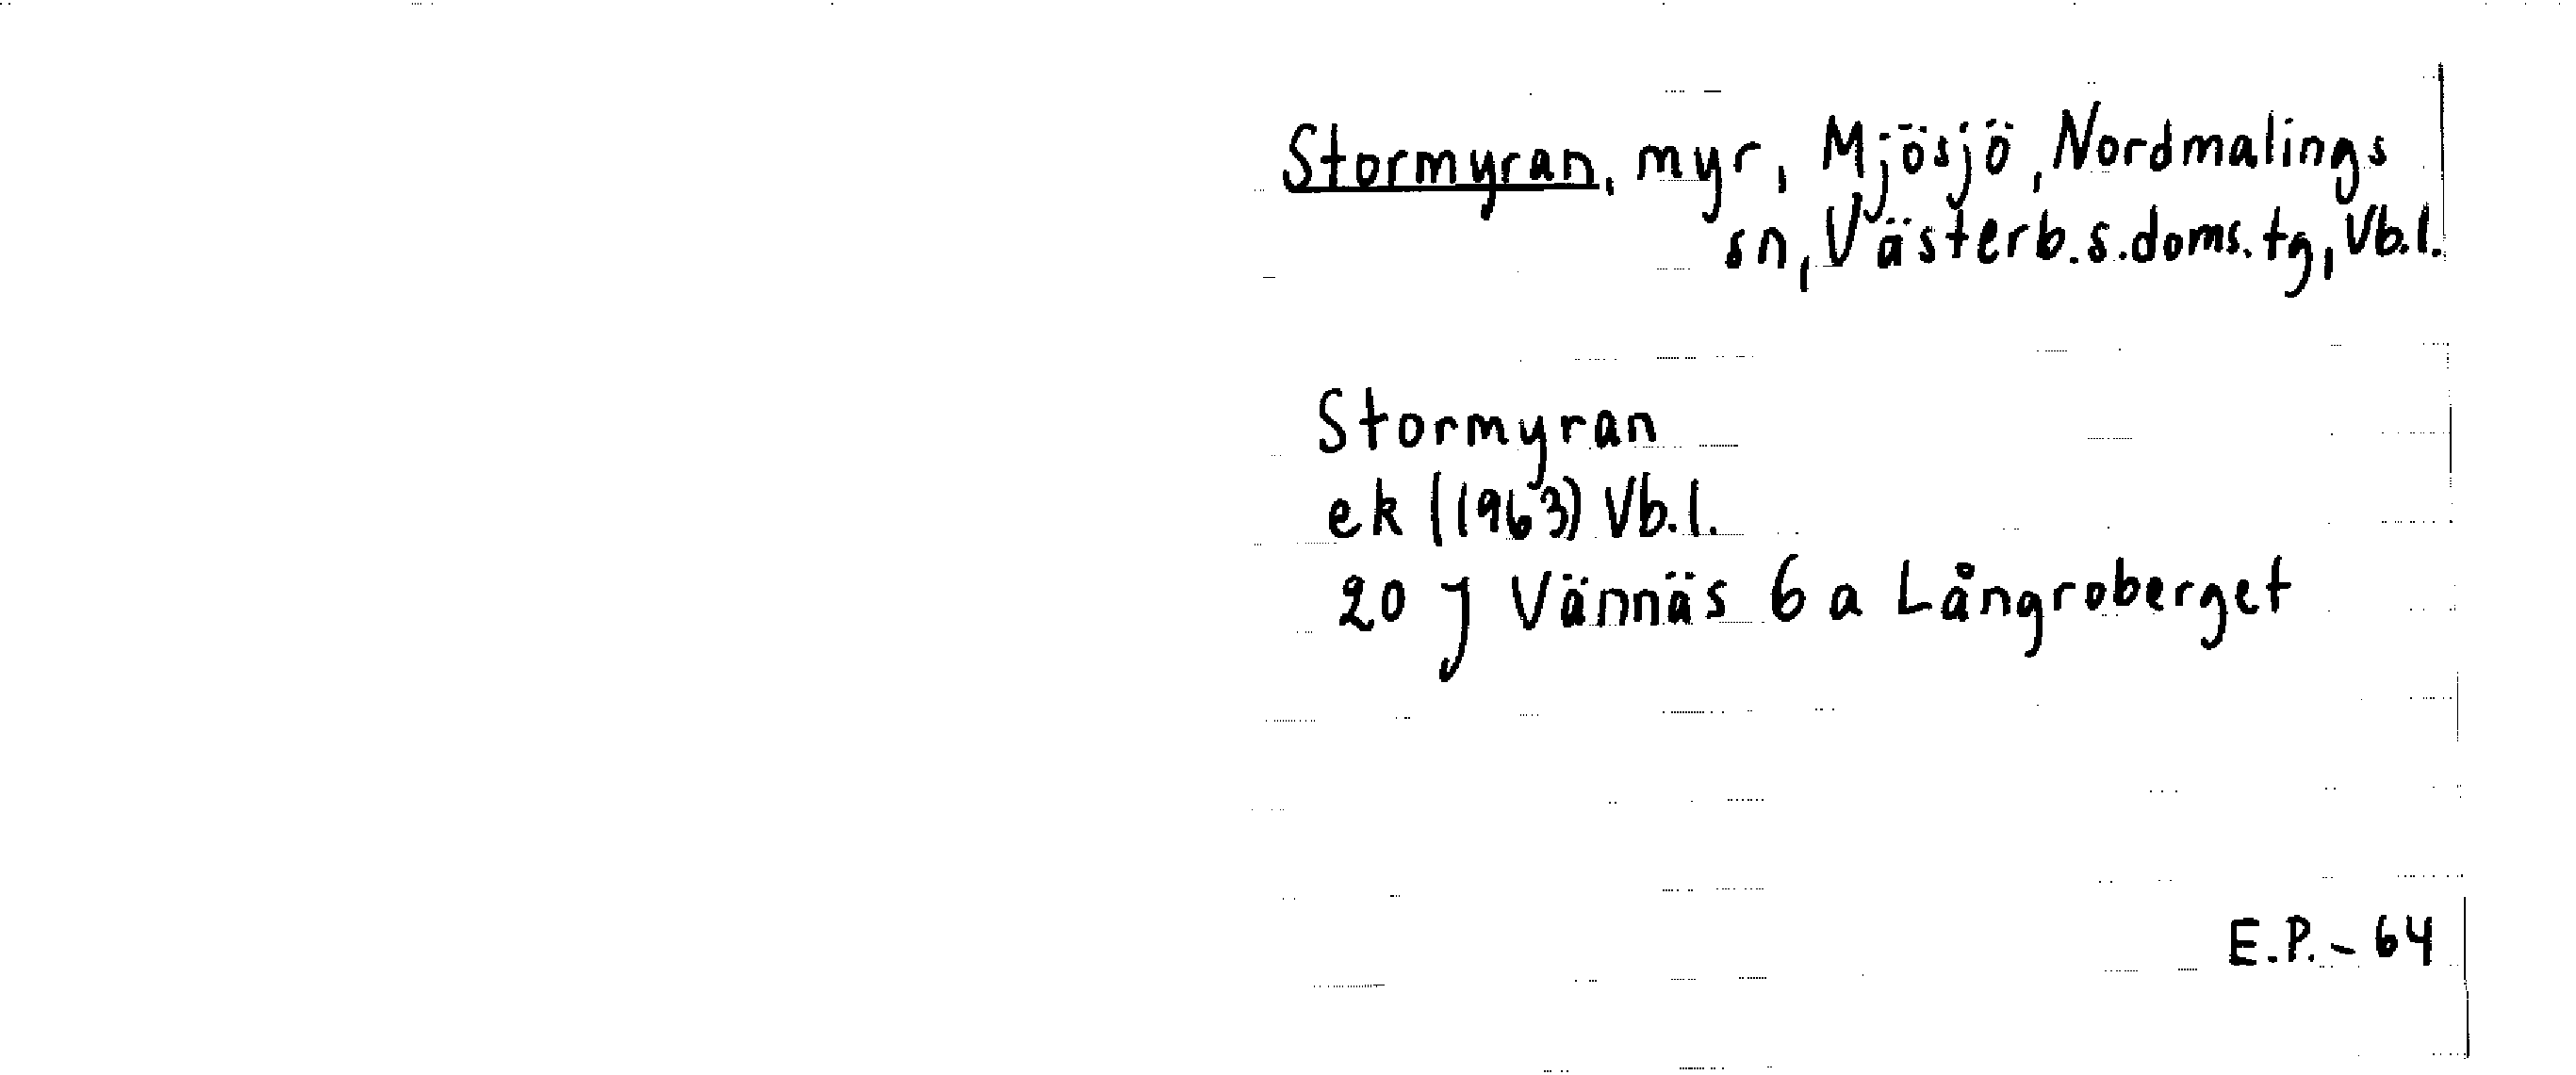 Stormyran, myr, Mjösjö, Nordmalings
sn, Västerb.s.doms.tg, Vb.l.
Stormyran
ek (1963) Vb.l.
20 J Vännäs 6 a Långroberget
E.P. - 64